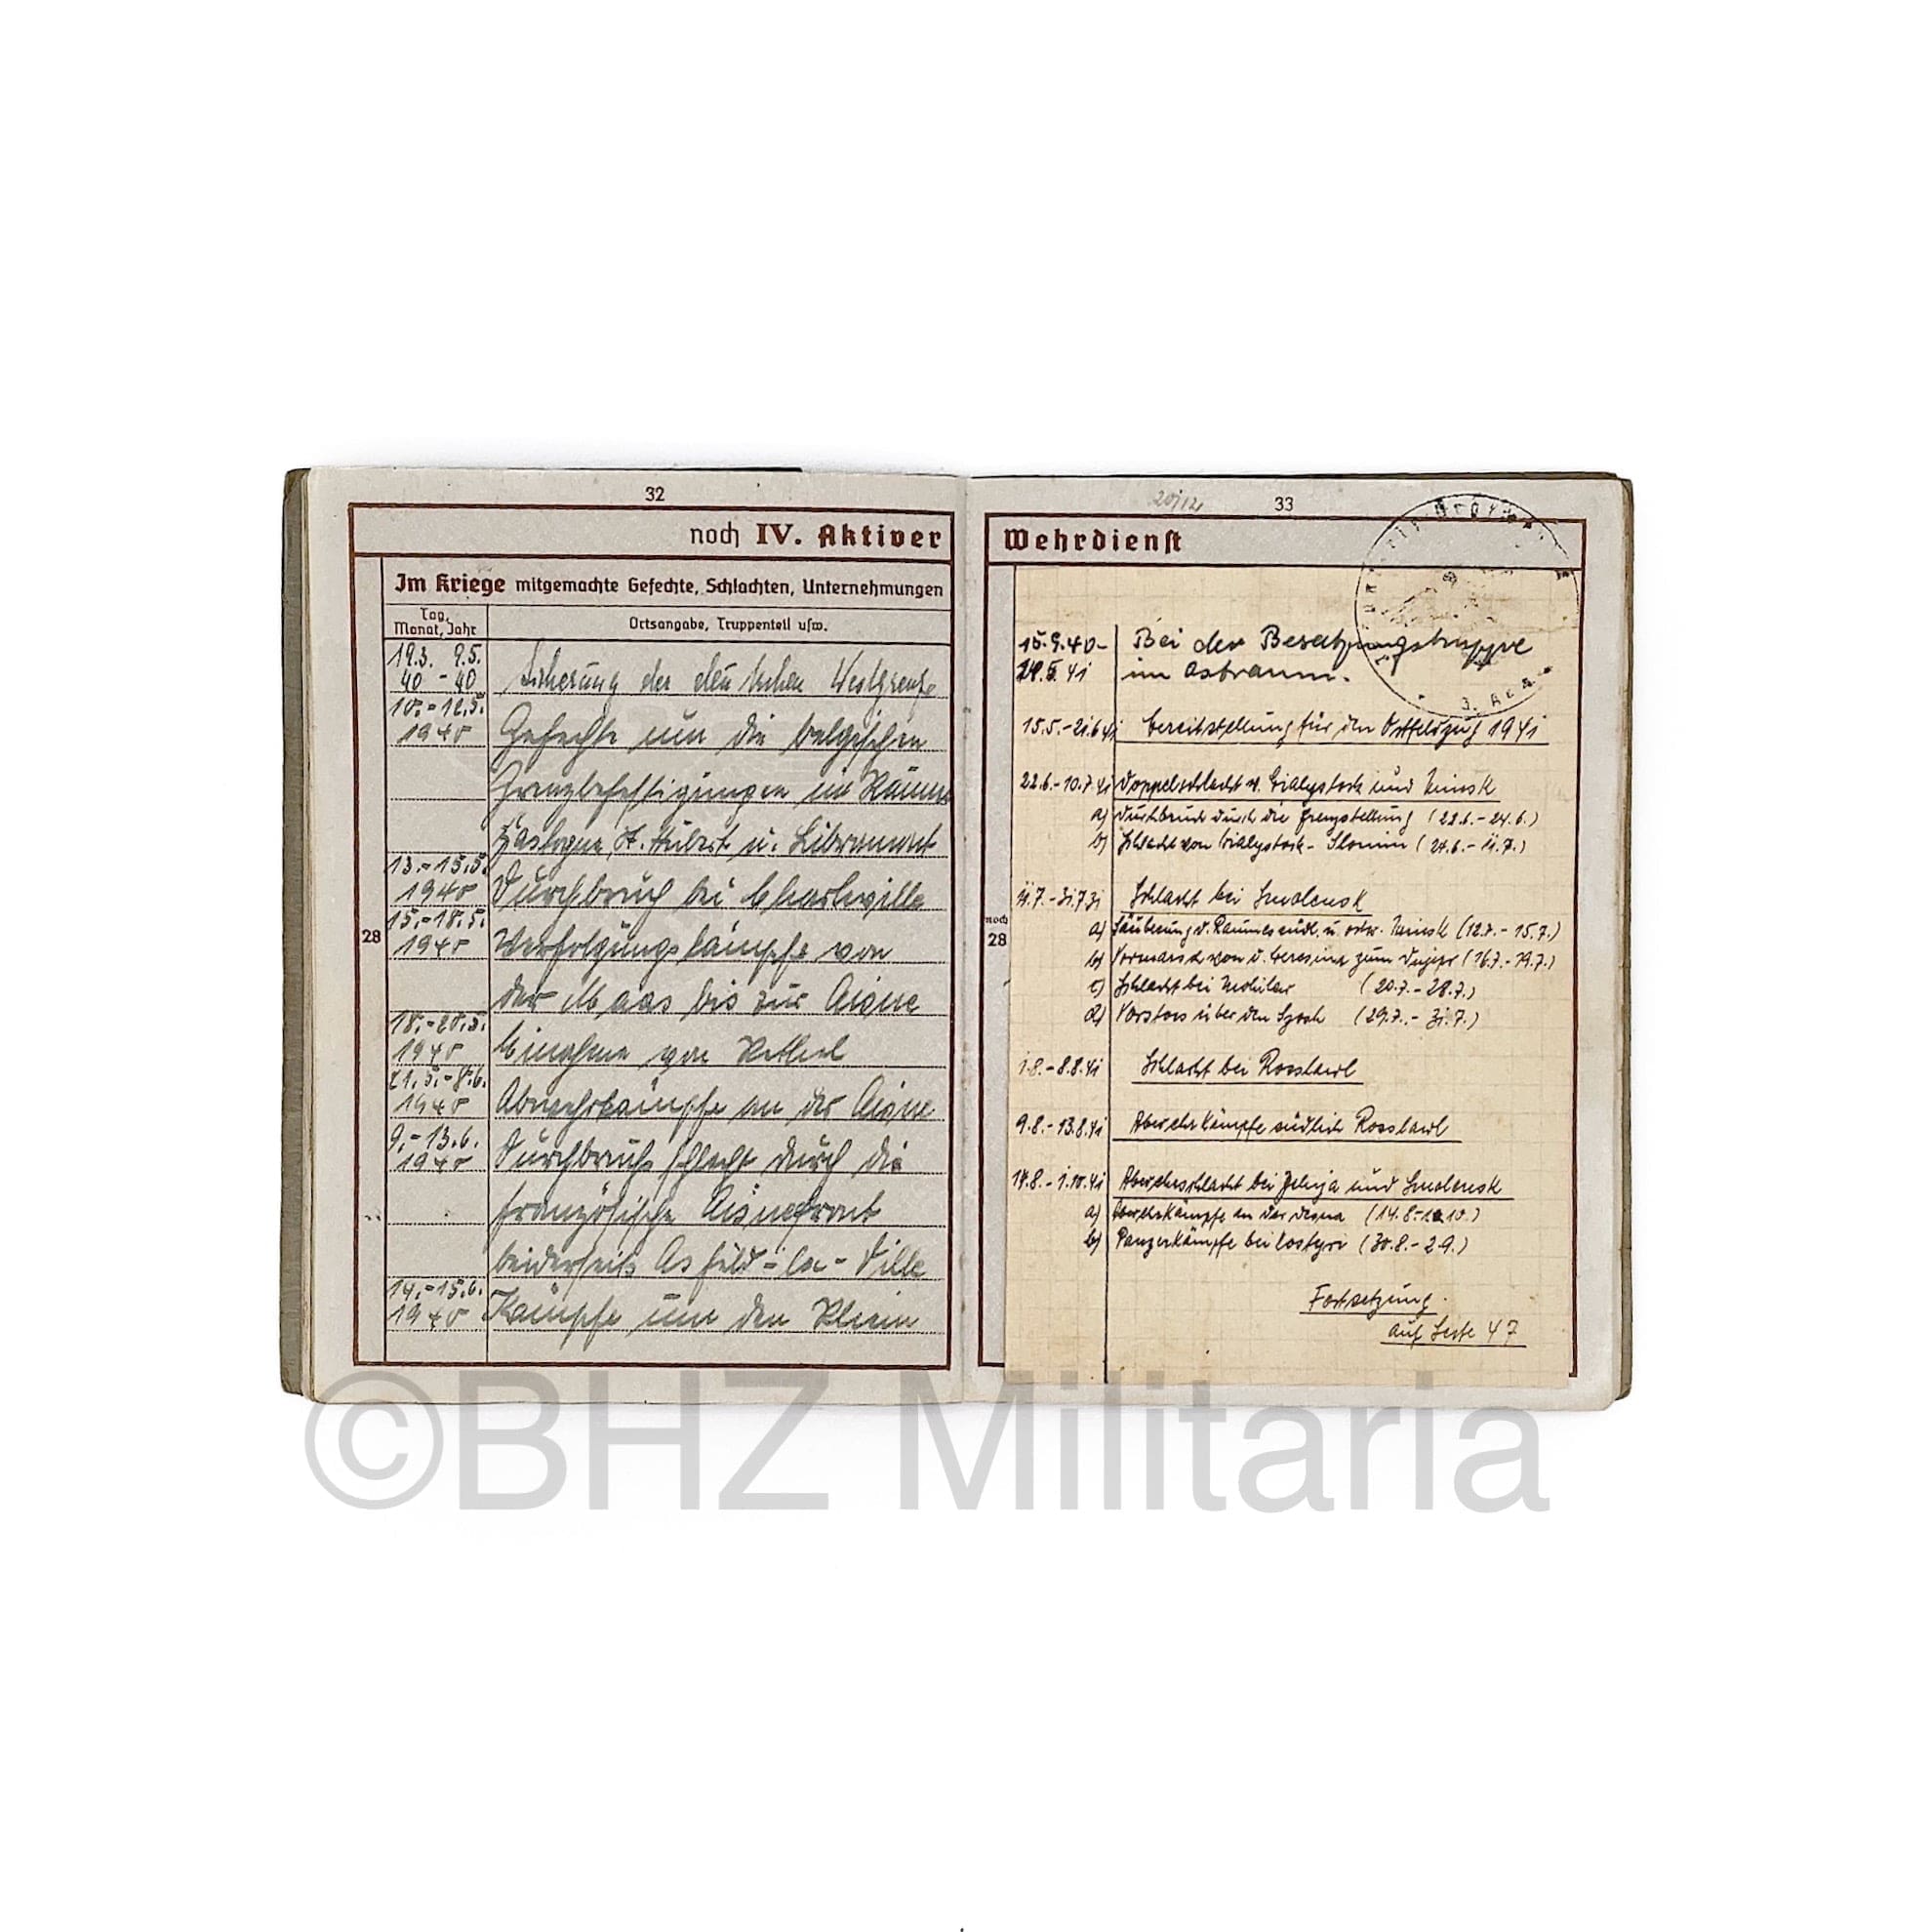 32
noch IV. Aktiver
Im Kriege mitgemachte Gefechte, Schlachten, Unternehmungen
Tag, Monat, Jahr
Ortsangabe, Truppenteil usw.
28
19.3. 9.5.
40 - 40
Sicherung der deutschen Westgrenze
10.-12.5.
1940
Gefechte um die belgischen
Grenzbefestigungen im Raume
Bastogne, St. Hubert u. Libramont
13.-15.5.
1940
Durchbruch bei Charleville
15.-18.5.
1940
Verfolgungskämpfe von
der Maas bis zur Aisne
18.-20.5.
1940
Einnahme von Rethel
21.5.-8.6.
1940
Abwehrkämpfe an der Aisne
9.-13.6.
1940
Durchbruchschlacht durch die
französische Aisnefront
beiderseits Asfeld-la-Ville
14.-15.6.
1940
Kämpfe um den Rhein
33
Wehrdienst
noch
28
15.9.40- Bei der Besatzungstruppe
41 im Ostraum.
15.5.-21.6.41 Bereitstellung für den Ostfeldzug 1941
22.6.-10.7.41 Doppelschlacht v. Bialystock und Minsk
a) Durchbruch durch die Grenzstellung (22.6.-24.6.)
b) Schlacht von Bialystock-Slonim (24.6.-11.7.)
11.7.-31.7. Schlacht bei Smolensk
a) Säuberung d. Raumes südl. u. ostw. Minsk (12.7.-15.7.)
b) Vormarsch von d. Beresina zum Dnjepr (16.7.-19.7.)
c) Schlacht bei Mohilew (20.7.-28.7.)
d) Vorstoss über den Ssosh (29.7.-31.7.)
1.8.-8.8.41 Schlacht bei Rosslawl
9.8.-13.8.41 Abwehrkämpfe südlich Rosslawl
14.8.-1.10.41 Abwehrschlacht bei Jelnja und Smolensk
a) Abwehrkämpfe an der Desna (14.8.-1.10.)
b) Panzerkämpfe bei Kostyri (30.8.-2.9.)
Fortsetzung
auf Seite 47
©BHZ Militaria